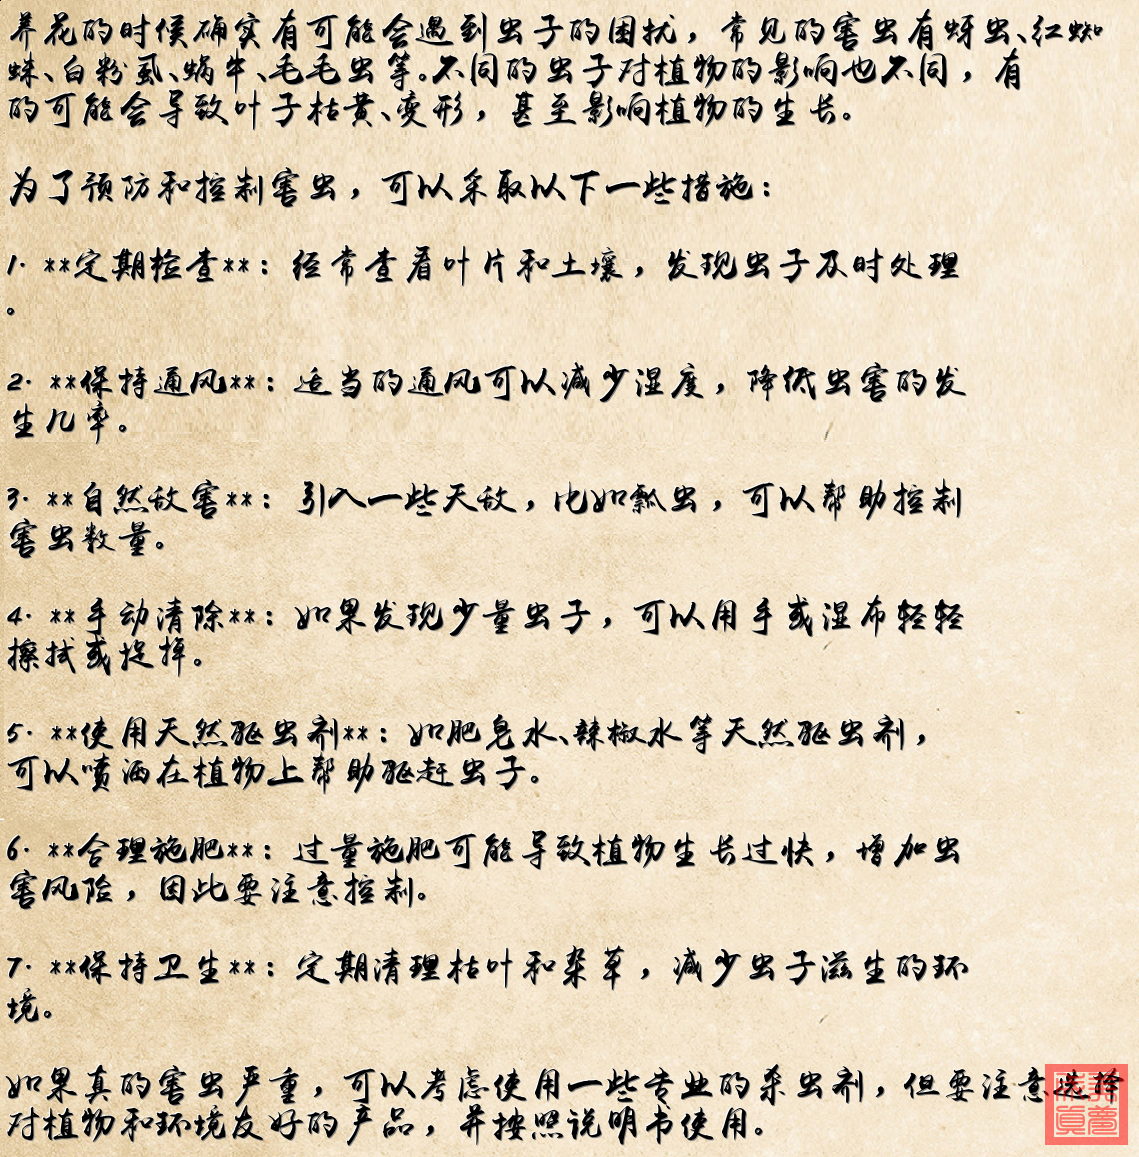 养花的时候确实有可能会遇到虫子的困扰，常见的害虫有蚜虫、红蜘
蛛、白粉虱、蜗牛、毛毛虫等。不同的虫子对植物的影响也不同，有
的可能会导致叶子枯黄、变形，甚至影响植物的生长。
为了预防和控制害虫，可以采取以下一些措施：
1. **定期检查**：经常查看叶片和土壤，发现虫子及时处理
。
2. **保持通风**：适当的通风可以减少湿度，降低虫害的发
生几率。
3. **自然敌害**：引入一些天敌，比如瓢虫，可以帮助控制
害虫数量。
4. **手动清除**：如果发现少量虫子，可以用手或湿布轻轻
擦拭或捉掉。
5. **使用天然驱虫剂**：如肥皂水、辣椒水等天然驱虫剂，
可以喷洒在植物上帮助驱赶虫子。
6. **合理施肥**：过量施肥可能导致植物生长过快，增加虫
害风险，因此要注意控制。
7. **保持卫生**：定期清理枯叶和杂草，减少虫子滋生的环
境。
如果真的害虫严重，可以考虑使用一些专业的杀虫剂，但要注意选择
对植物和环境友好的产品，并按照说明书使用。